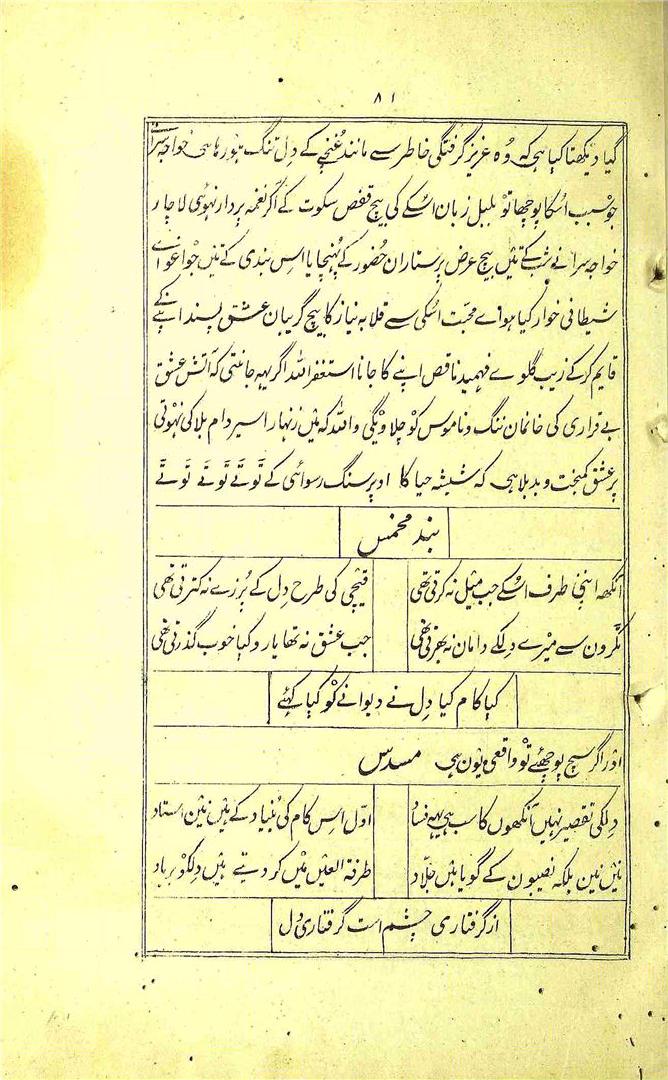 ۸۱
گیا دیکھتا کیا ہی کہ وُہ عزیز گرفتگی خاطر سے مانند غُنچے کے دِل تنگ ہو رہا ہی خواجہ سرا
جو سبب اُسکا پوچھا تو بلبل زبان اُسکے کی بیچ قفص سکوت کے اگر نغمہ پرداز نہوئی لاچار
خواجہ سرا نے کے تئیں بیچ عرض پرستاران حُضور کے پُہنچایا اِس بندی کے تئیں جو اغواے
شیطانی خوار کیا ہواے محبّت اُسکی سے قلابہ نیاز کا بیچ گریبان عشق پسند اپنے کے
قایم کر کے زیب گلوے فہمید ناقص اپنے کا جانا استغفر اللّٰہ اگر یہہ جانتی کہ آتش عشق
بے قراری کی خانمان ننگ و ناموس کو جلاویگی واللّٰہ کہ مَیں زنہار اسیر دام بلا کی نہوتی
پر عشق کمبخت وہ بد بلا ہی کہ شیشہ حیا کا اوپر سنگ رسوائی کے توَتے توَتے توَتے توَتے
بند مخمّس
آنکھہ اپنی طرف اُسکے جب میل نہ کرتی تھی
قینچی کی طرح دِل کے پُرزے نہ کترتی تھی
ٹکڑون سے میرے دِلکے دامان نہ بھرتی تھی
جب عشق نہ تھا یارو کیا خوب گذرتی تھی
کیا کام کیا دِل نے دیوانے کو کیا کہئے
اور اگر سچ پوچھئے تو واقعی یون ہی مسدّس
دِلکی تقصیر نہیں آنکھوں کا سب ہی یہہ فساد
اوّل اِس کام کی بُنیاد کے ہیں نین استاد
نیں نین بلکہ نصیبون کے گویا ہیں جلّاد
طرفۃ العین میں کر دیتے ہیں دِلکو برباد
از گرفتاری چشم است گرفتاری دل